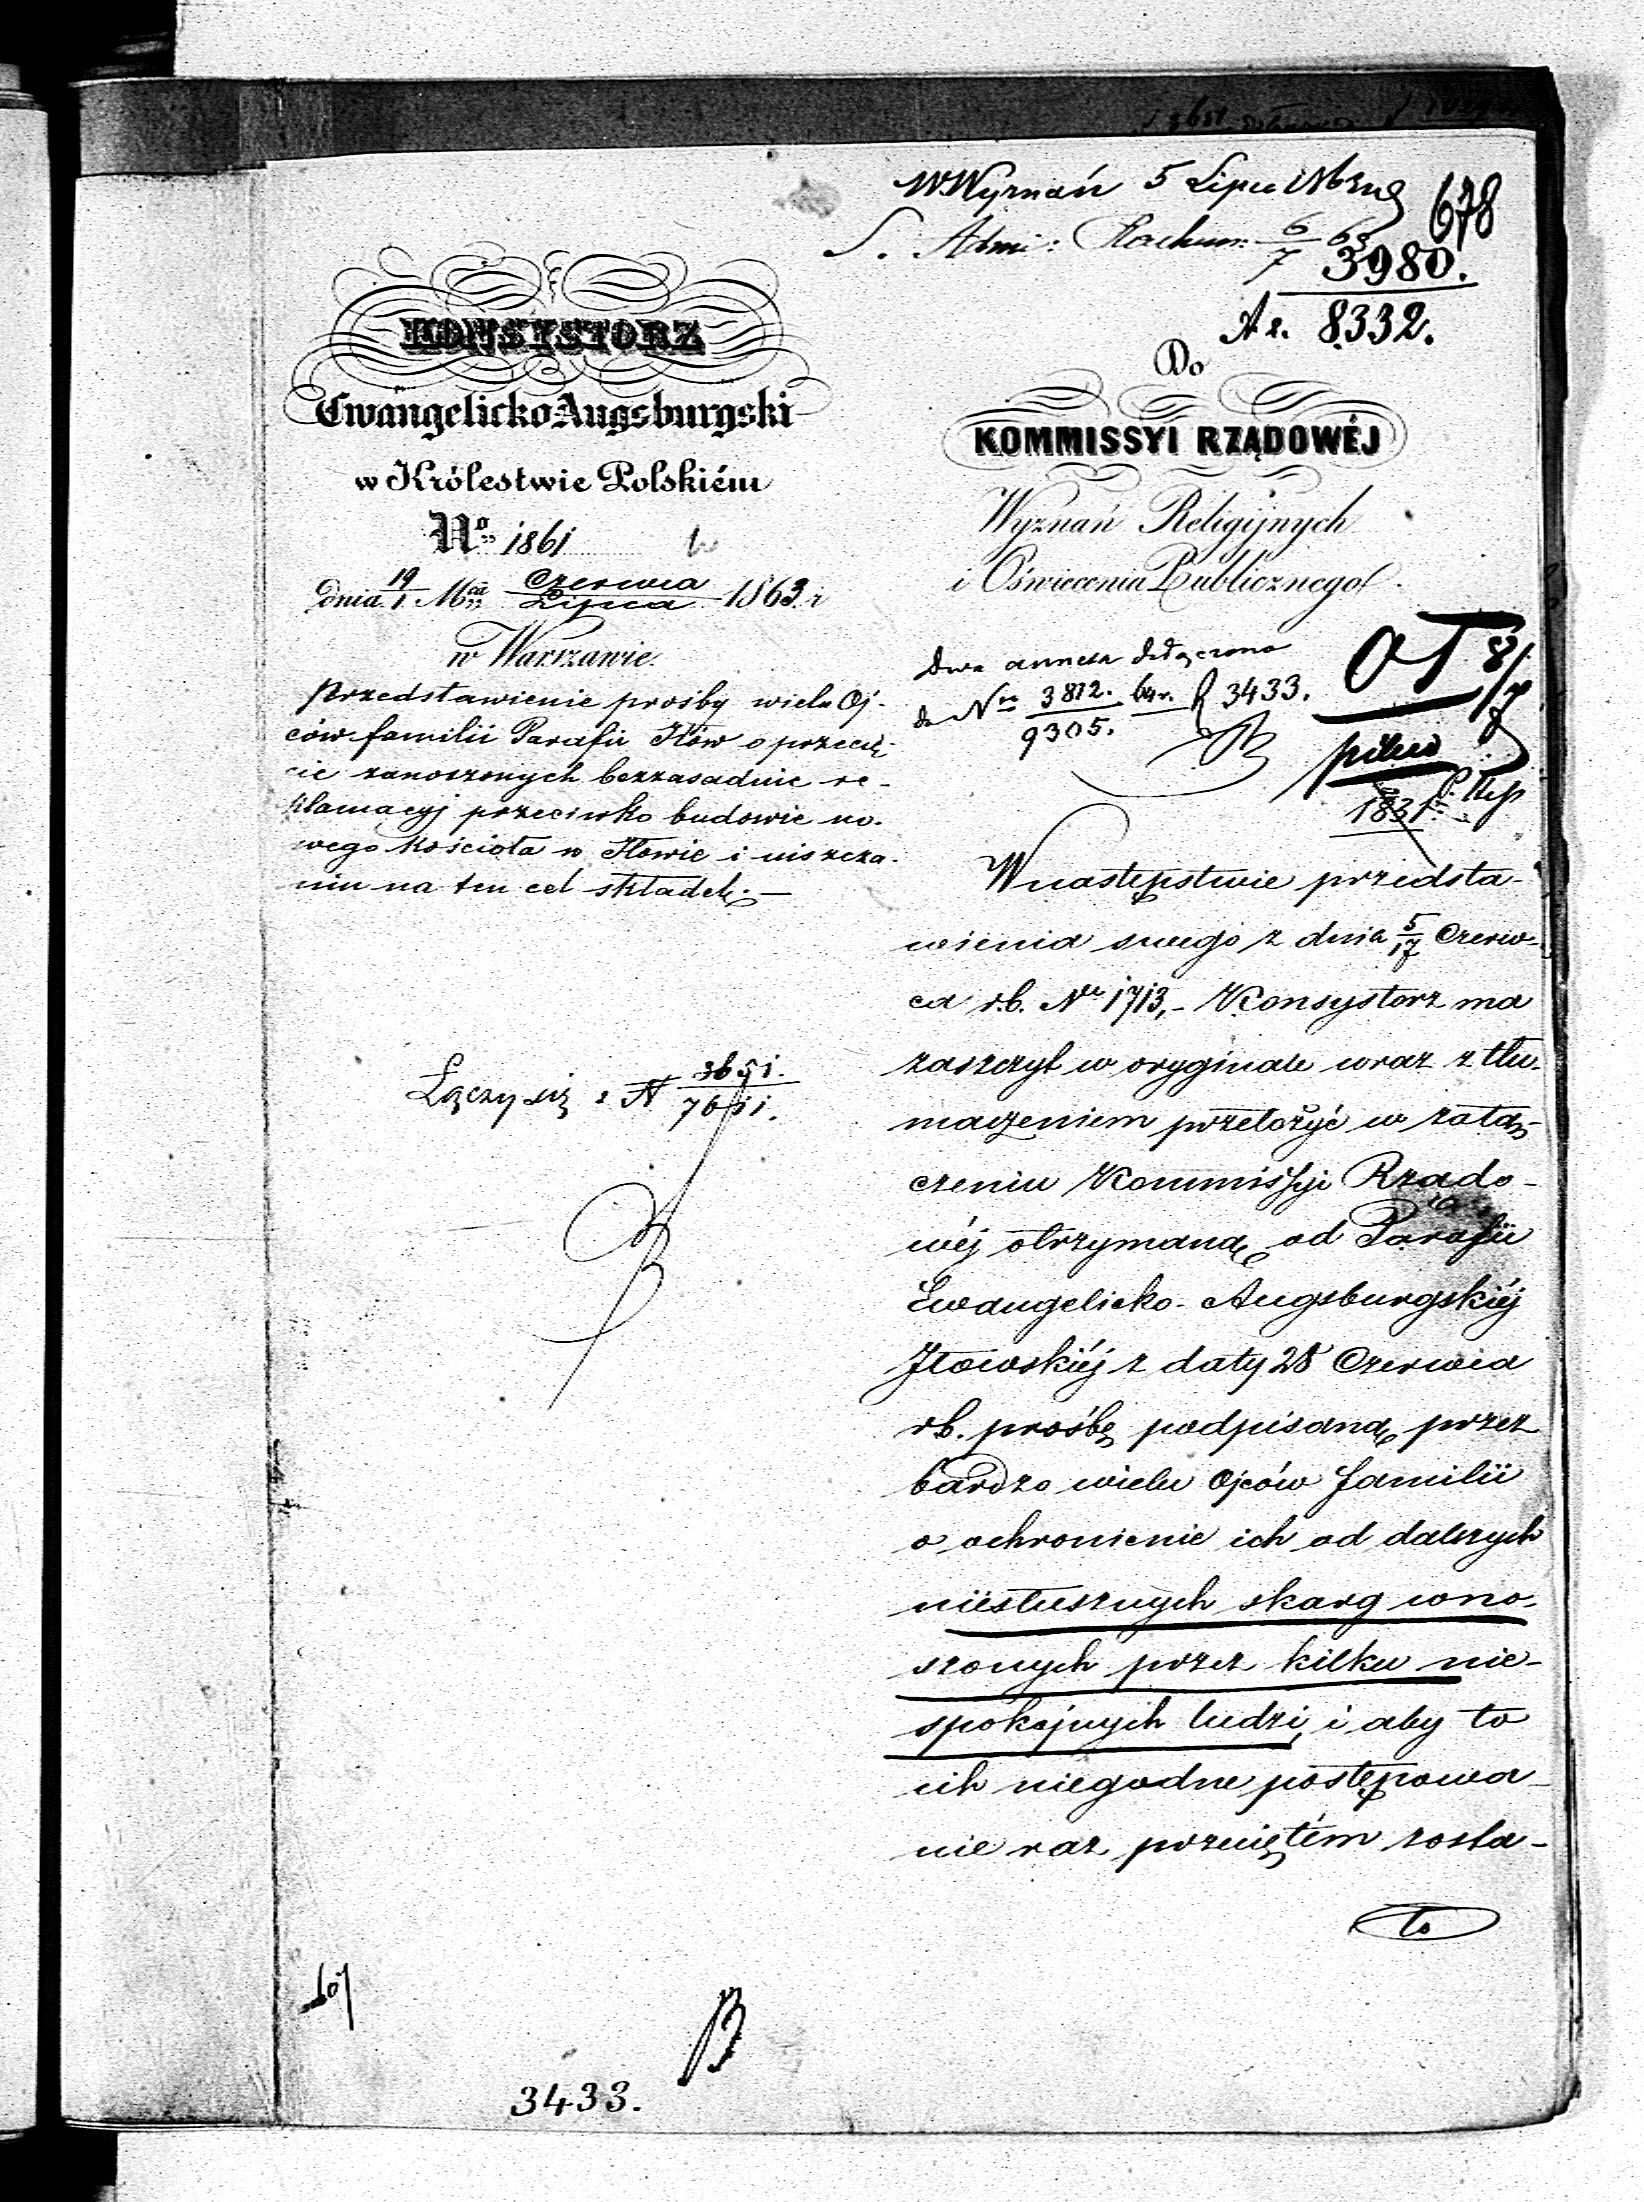 W Wyznań 5 Lipca
678
S. Admi: Rachun: 6/7 63
3980.
8332.
KONSYSTORZ
Ewangelicko Augsburgski
w Królestwie Polskiém
No 1861
dnia 19/1 Mca Czerwca/Lipca 1863 r
w Warszawie.
Przedstawienie prośby wielu Oj-
ców familii Parafii Iłów o przecię-
cie zanoszonych bezzasadnie re-
klamacyj przeciwko budowie no-
wego kościoła w Iłowie i uiszcza-
niu na ten cel składek.—
Łączy się z N 3651./7611.
Do
KOMMISSYI RZĄDOWÉJ
Wyznań Religijnych
i Oświecenia Publicznego.
dwa annexa dołączono
do Nru 3812./9305. 3433.
8/7
pilno
1831
W następstwie przedsta-
wienia swego z dnia 5/17 Czerw-
ca r.b. Nr 1713,- Konsystorz ma
zaszczyt w oryginale wraz z tłu-
maczeniem przełożyć w załą-
czeniu Kommissyi Rządo-
wéj otrzymaną od Parafii
Ewangelicko-Augsburgskiéj
Iłowskiéj z daty 28 Czerwca
rb. prośbę podpisaną przez
bardzo wielu Ojców familii
o ochronienie ich od dalszych
niesłusznych skarg wno-
szonych przez kilku nie-
spokojnych ludzi, i aby to
ich niegodne postępowa-
nie raz przeciętém zosta-
ło
3433.